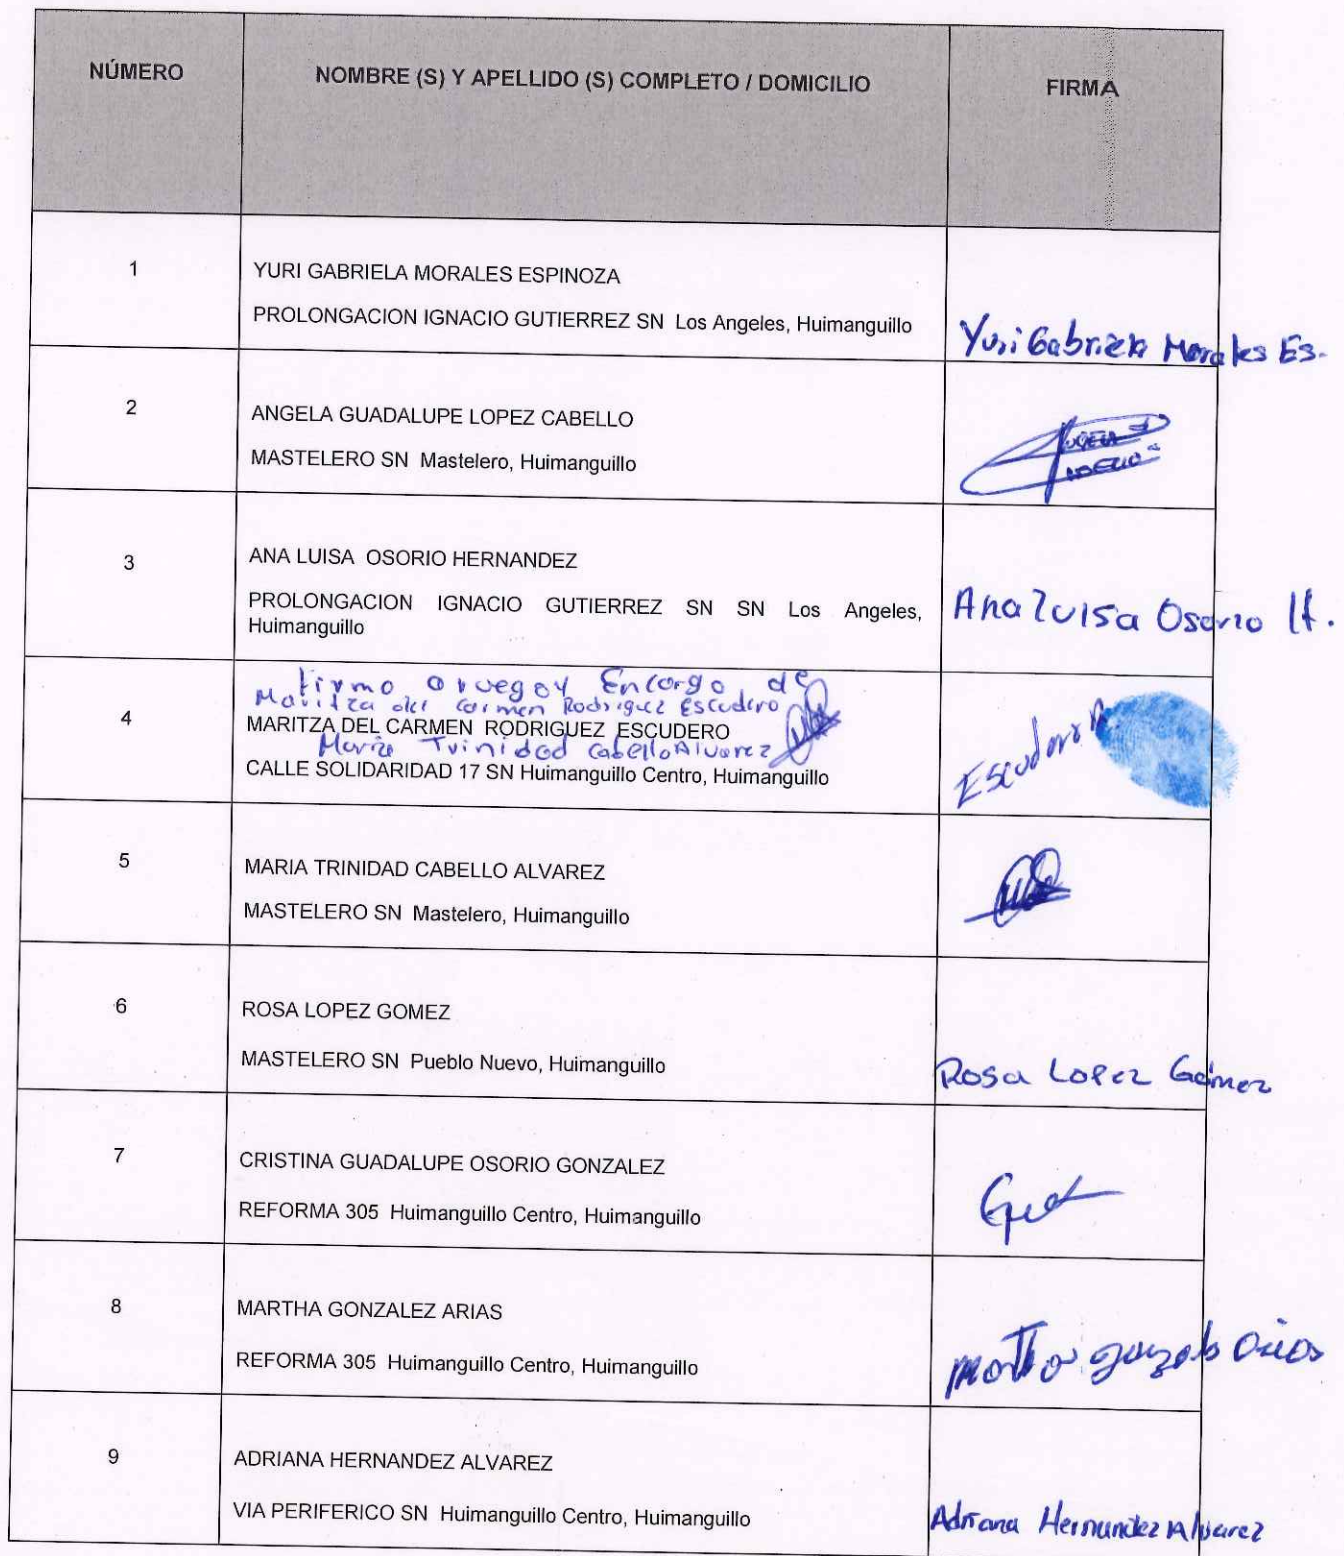 NÚMERO
NOMBRE (S) Y APELLIDO (S) COMPLETO / DOMICILIO
FIRMA
1
YURI GABRIELA MORALES ESPINOZA
PROLONGACION IGNACIO GUTIERREZ SN Los Angeles, Huimanguillo
Yuri Gabriela Morales Es.
2
ANGELA GUADALUPE LOPEZ CABELLO
MASTELERO SN Mastelero, Huimanguillo
3
ANA LUISA OSORIO HERNANDEZ
PROLONGACION IGNACIO GUTIERREZ SN SN Los Angeles,
Huimanguillo
Ana Luisa Osorio H.
firmo a ruego y Encargo de
Maritza del Carmen Rodriguez Escudero
4
MARITZA DEL CARMEN RODRIGUEZ ESCUDERO
Maria Trinidad Cabello Alvarez
CALLE SOLIDARIDAD 17 SN Huimanguillo Centro, Huimanguillo
Escudero R
5
MARIA TRINIDAD CABELLO ALVAREZ
MASTELERO SN Mastelero, Huimanguillo
6
ROSA LOPEZ GOMEZ
MASTELERO SN Pueblo Nuevo, Huimanguillo
Rosa Lopez Gómez
7
CRISTINA GUADALUPE OSORIO GONZALEZ
REFORMA 305 Huimanguillo Centro, Huimanguillo
8
MARTHA GONZALEZ ARIAS
REFORMA 305 Huimanguillo Centro, Huimanguillo
9
ADRIANA HERNANDEZ ALVAREZ
VIA PERIFERICO SN Huimanguillo Centro, Huimanguillo
Adriana Hernandez Alvarez